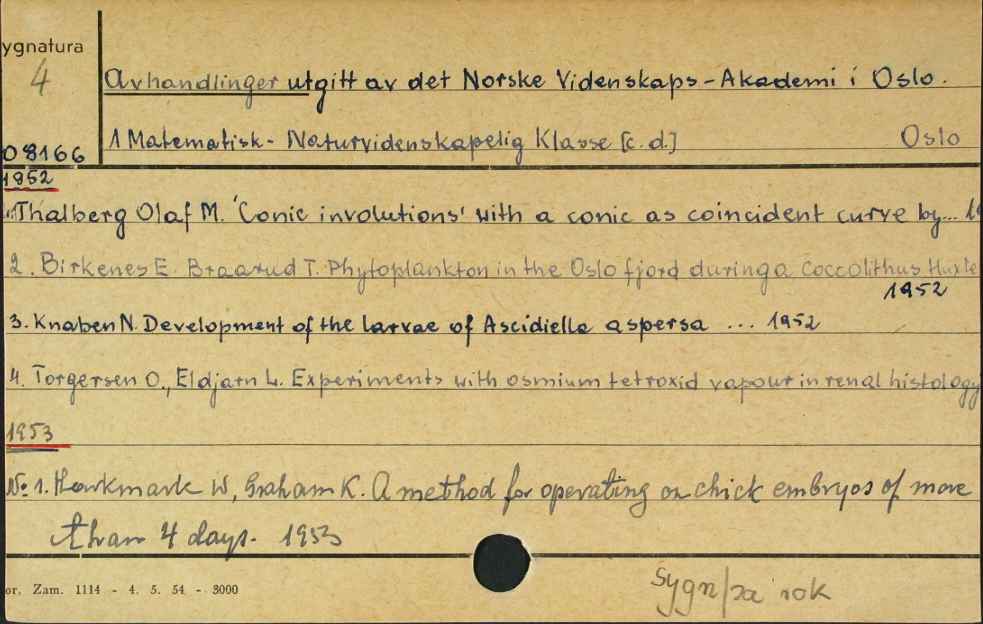 ygnatura
4
Avhandlinger utgitt av det Norske Videnskaps-Akademi i Oslo.
08166
1 Matematisk- Naturvidenskapelig Klasse [c.d.] Oslo
1952
Thalberg Olaf M. 'Conic involutions' with a conic as coincident curve by... 19
2. Birkenes E. Braarud T. Phytoplankton in the Oslo fjord during a Coccolithus Huxle
1952
3. Knaben N. Development of the larvae of Ascidiella aspersa ... 1952
4. Torgersen O., Eldjarn L. Experiments with osmium tetroxid vapour in renal histology
1953
No 1. Hawkmark W, Graham K. A method for operating on chick embryos of more
than 4 days. 1953
or. Zam. 1114 - 4. 5. 54 - 3000
Sygn/za rok